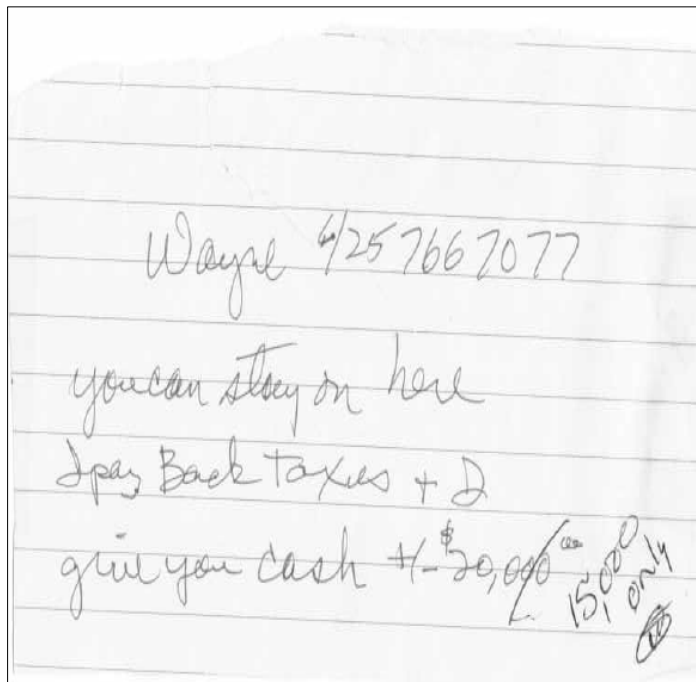 Wayne 4/25 766 7077
you can stay on here
I pay Back Taxes + I
give you cash +/- $20,000
15,000
only